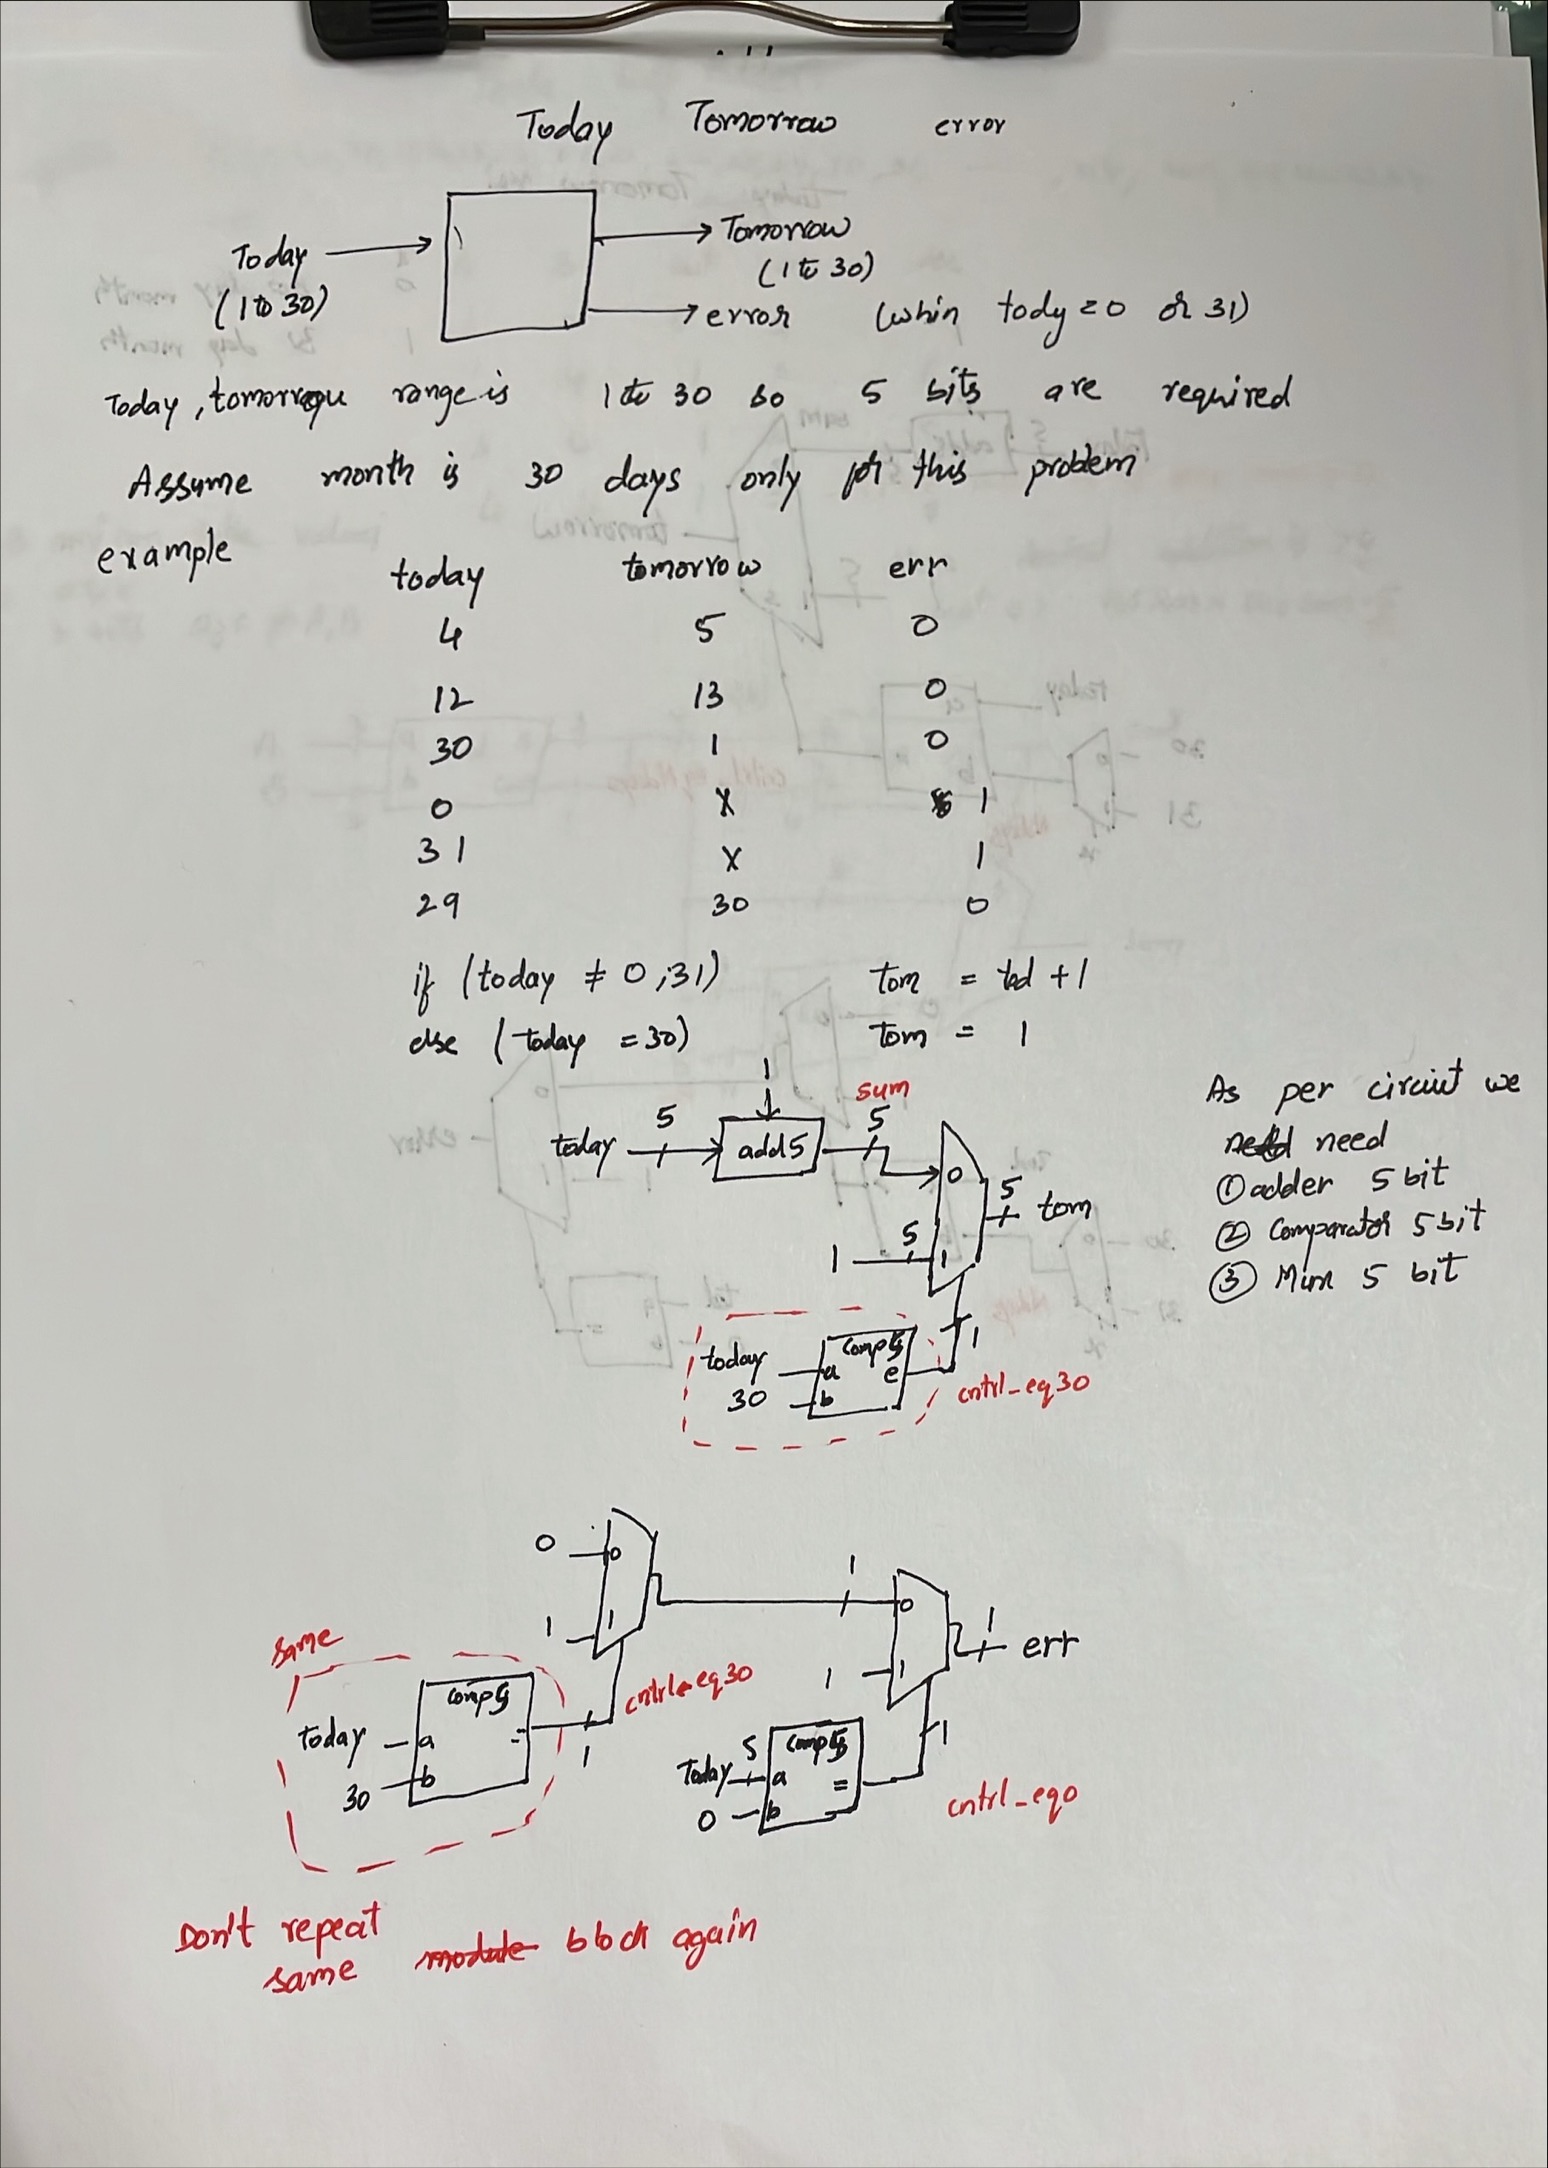 Today Tomorrow error
Today
(1 to 30)
Tomorrow
(1 to 30)
error (whin tody = 0 or 31)
Today, tomorrow range is 1 to 30 so 5 bits are required
Assume month is 30 days only for this problem
example
today tomorrow err
4 5 0
12 13 0
30 1 0
0 X 1
31 X 1
29 30 0
if (today ≠ 0,31) tom = tod + 1
else (today = 30) tom = 1
1
today 5 add5 sum 5
0
1 5 1
5 tom
today
30
a
b
comp5
e
1
cntrl_eq30
As per circuit we
need
① adder 5 bit
② Comparator 5 bit
③ Mux 5 bit
0 0
1 1
1
0
1 1
1 err
same
today
30
a
b
comp5
=
1
cntrl_eq30
Today 5
0
a
b
comp5
=
1
cntrl_eq0
Don't repeat
same module block again